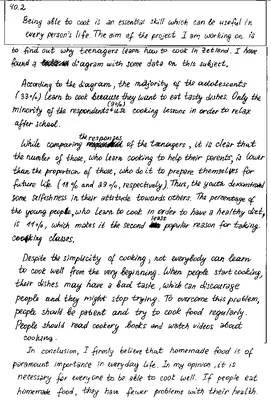 40.2
Being able to cook is an essential skill which can be useful in
every person's life. The aim of the project I am working on is
to find out why teenagers learn how to cook in Zetland. I have
found a diagram with some data on this subject.
According to the diagram, the majority of the adolescents
(33%) learn to cook because they want to eat tasty dishes. Only the
minority of the respondents (9%) use cooking lessons in order to relax
after school.
While comparing the responses of the teenagers, it is clear that
the number of those, who learn cooking to help their parents, is lower
than the proportion of those, who do it to prepare themselves for
future life (18% and 39%, respectively). Thus, the youth
some selfishness in their attitude towards others. The percentage of
the young people, who learn to cook in order to have a healthy diet,
is 11%, which makes it the second least popular reason for taking
cooking classes.
Despite the simplicity of cooking, not everybody can learn
to cook well from the very beginning. When people start cooking,
their dishes may have a bad taste, which can discourage
people and they might stop trying. To overcome this problem,
people should be patient and try to cook food regularly.
People should read cookery books and watch videos about
cooking.
In conclusion, I firmly believe that homemade food is of
paramount importance in everyday life. In my opinion, it is
necessary for everyone to be able to cook well. If people eat
homemade food, they have fewer problems with their health.